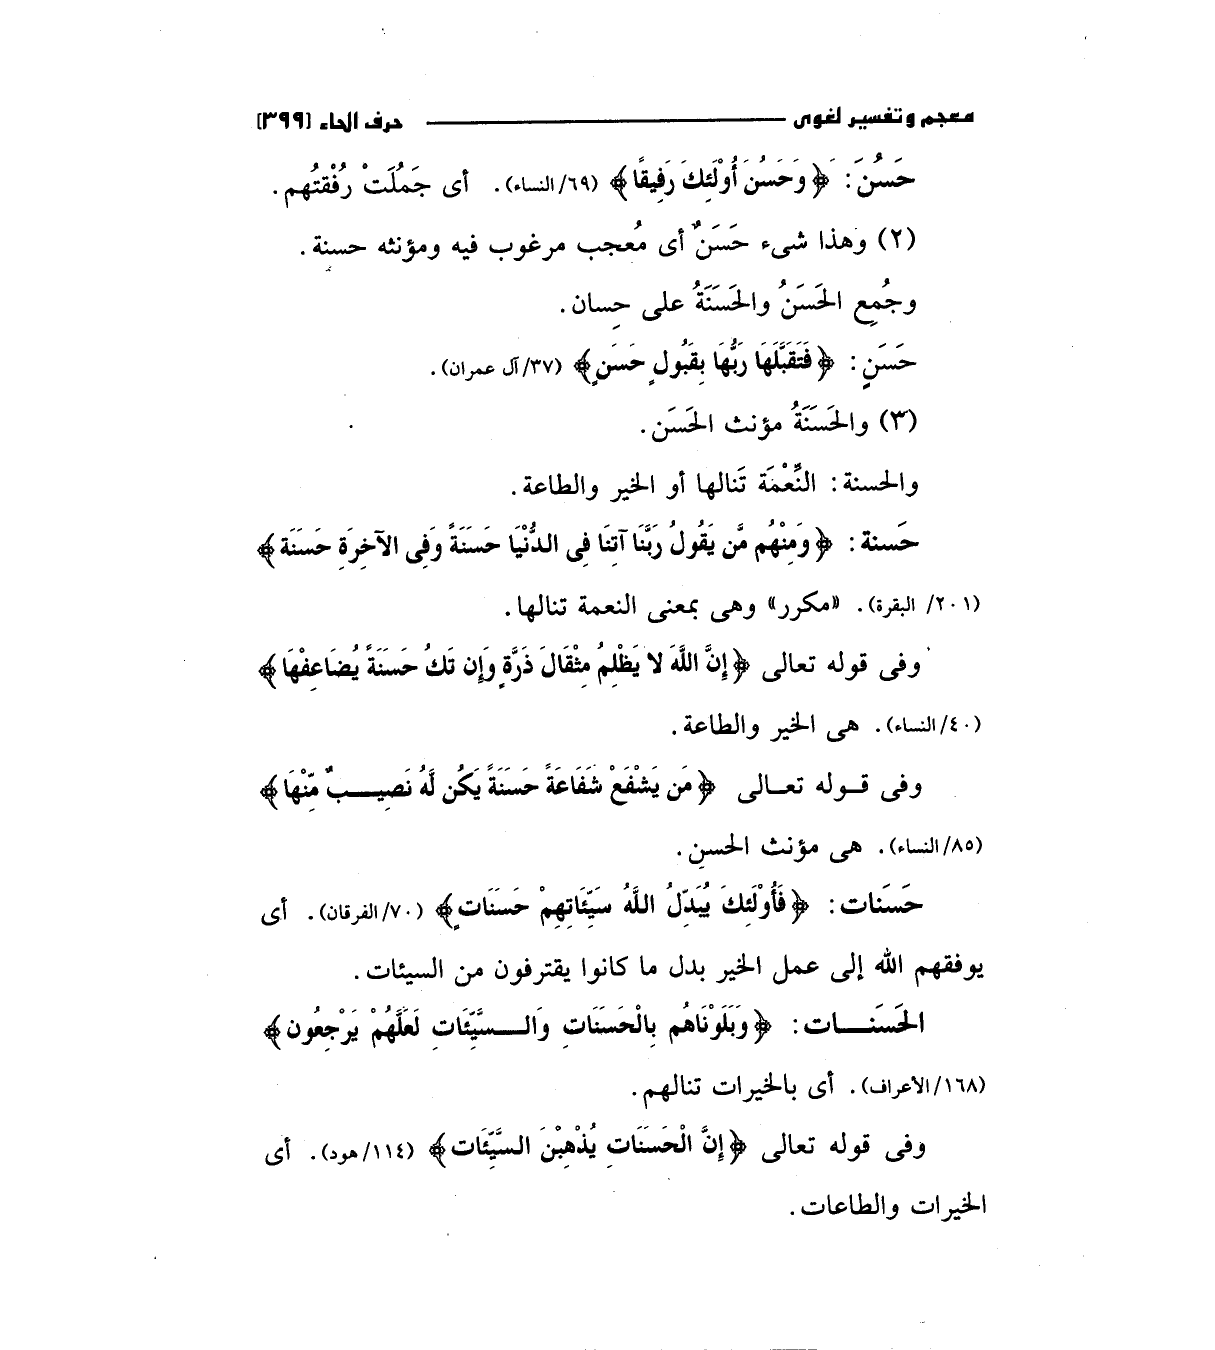 معجم وتفسير لغوى حرف الحاء [٣٩٩]
حَسُنَ: ﴿وَحَسُنَ أُوْلَئِكَ رَفِيقًا﴾ (٦٩/النساء). أى جَمُلَتْ رُفْقتُهم.
(٢) وهذا شىء حَسَنٌ أى مُعجب مرغوب فيه ومؤنثه حسنة.
وجُمِع الحَسَنُ والحَسَنَةُ على حِسان.
حَسَنٍ: ﴿فَتَقَبَّلَهَا رَبُّهَا بِقَبُولٍ حَسَنٍ﴾ (٣٧/آل عمران).
(٣) والحَسَنَةُ مؤنث الحَسَن.
والحسنة: النِّعْمَة تَنالها أو الخير والطاعة.
حَسنة: ﴿وَمِنْهُم مَّن يَقُولُ رَبَّنَا آتِنَا فِى الدُّنْيَا حَسَنَةً وَفِى الآخِرَةِ حَسَنَة﴾
(٢٠١/ البقرة). «مكرر» وهى بمعنى النعمة تنالها.
وفى قوله تعالى ﴿إِنَّ اللَّهَ لا يَظْلِمُ مِثْقَالَ ذَرَّةٍ وَإِن تَكُ حَسَنَةً يُضَاعِفْهَا﴾
(٤٠/النساء). هى الخير والطاعة.
وفى قـوله تعـالى ﴿مَن يَشْفَعْ شَفَاعَةً حَسَنَةً يَكُن لَّهُ نَصِيـــبٌ مِّنْهَا﴾
(٨٥/النساء). هى مؤنث الحسن.
حَسَنات: ﴿فَأُوْلَئِكَ يُبَدِّلُ اللَّهُ سَيِّئَاتِهِمْ حَسَنَاتٍ﴾ (٧٠/الفرقان). أى
يوفقهم الله إلى عمل الخير بدل ما كانوا يقترفون من السيئات.
الحَسَنـــات: ﴿وَبَلَوْنَاهُم بِالْحَسَنَاتِ وَالـــسَّيِّئَاتِ لَعَلَّهُمْ يَرْجِعُون﴾
(١٦٨/الأعراف). أى بالخيرات تنالهم.
وفى قوله تعالى ﴿إِنَّ الْحَسَنَاتِ يُذْهِبْنَ السَّيِّئَات﴾ (١١٤/هود). أى
الخيرات والطاعات.